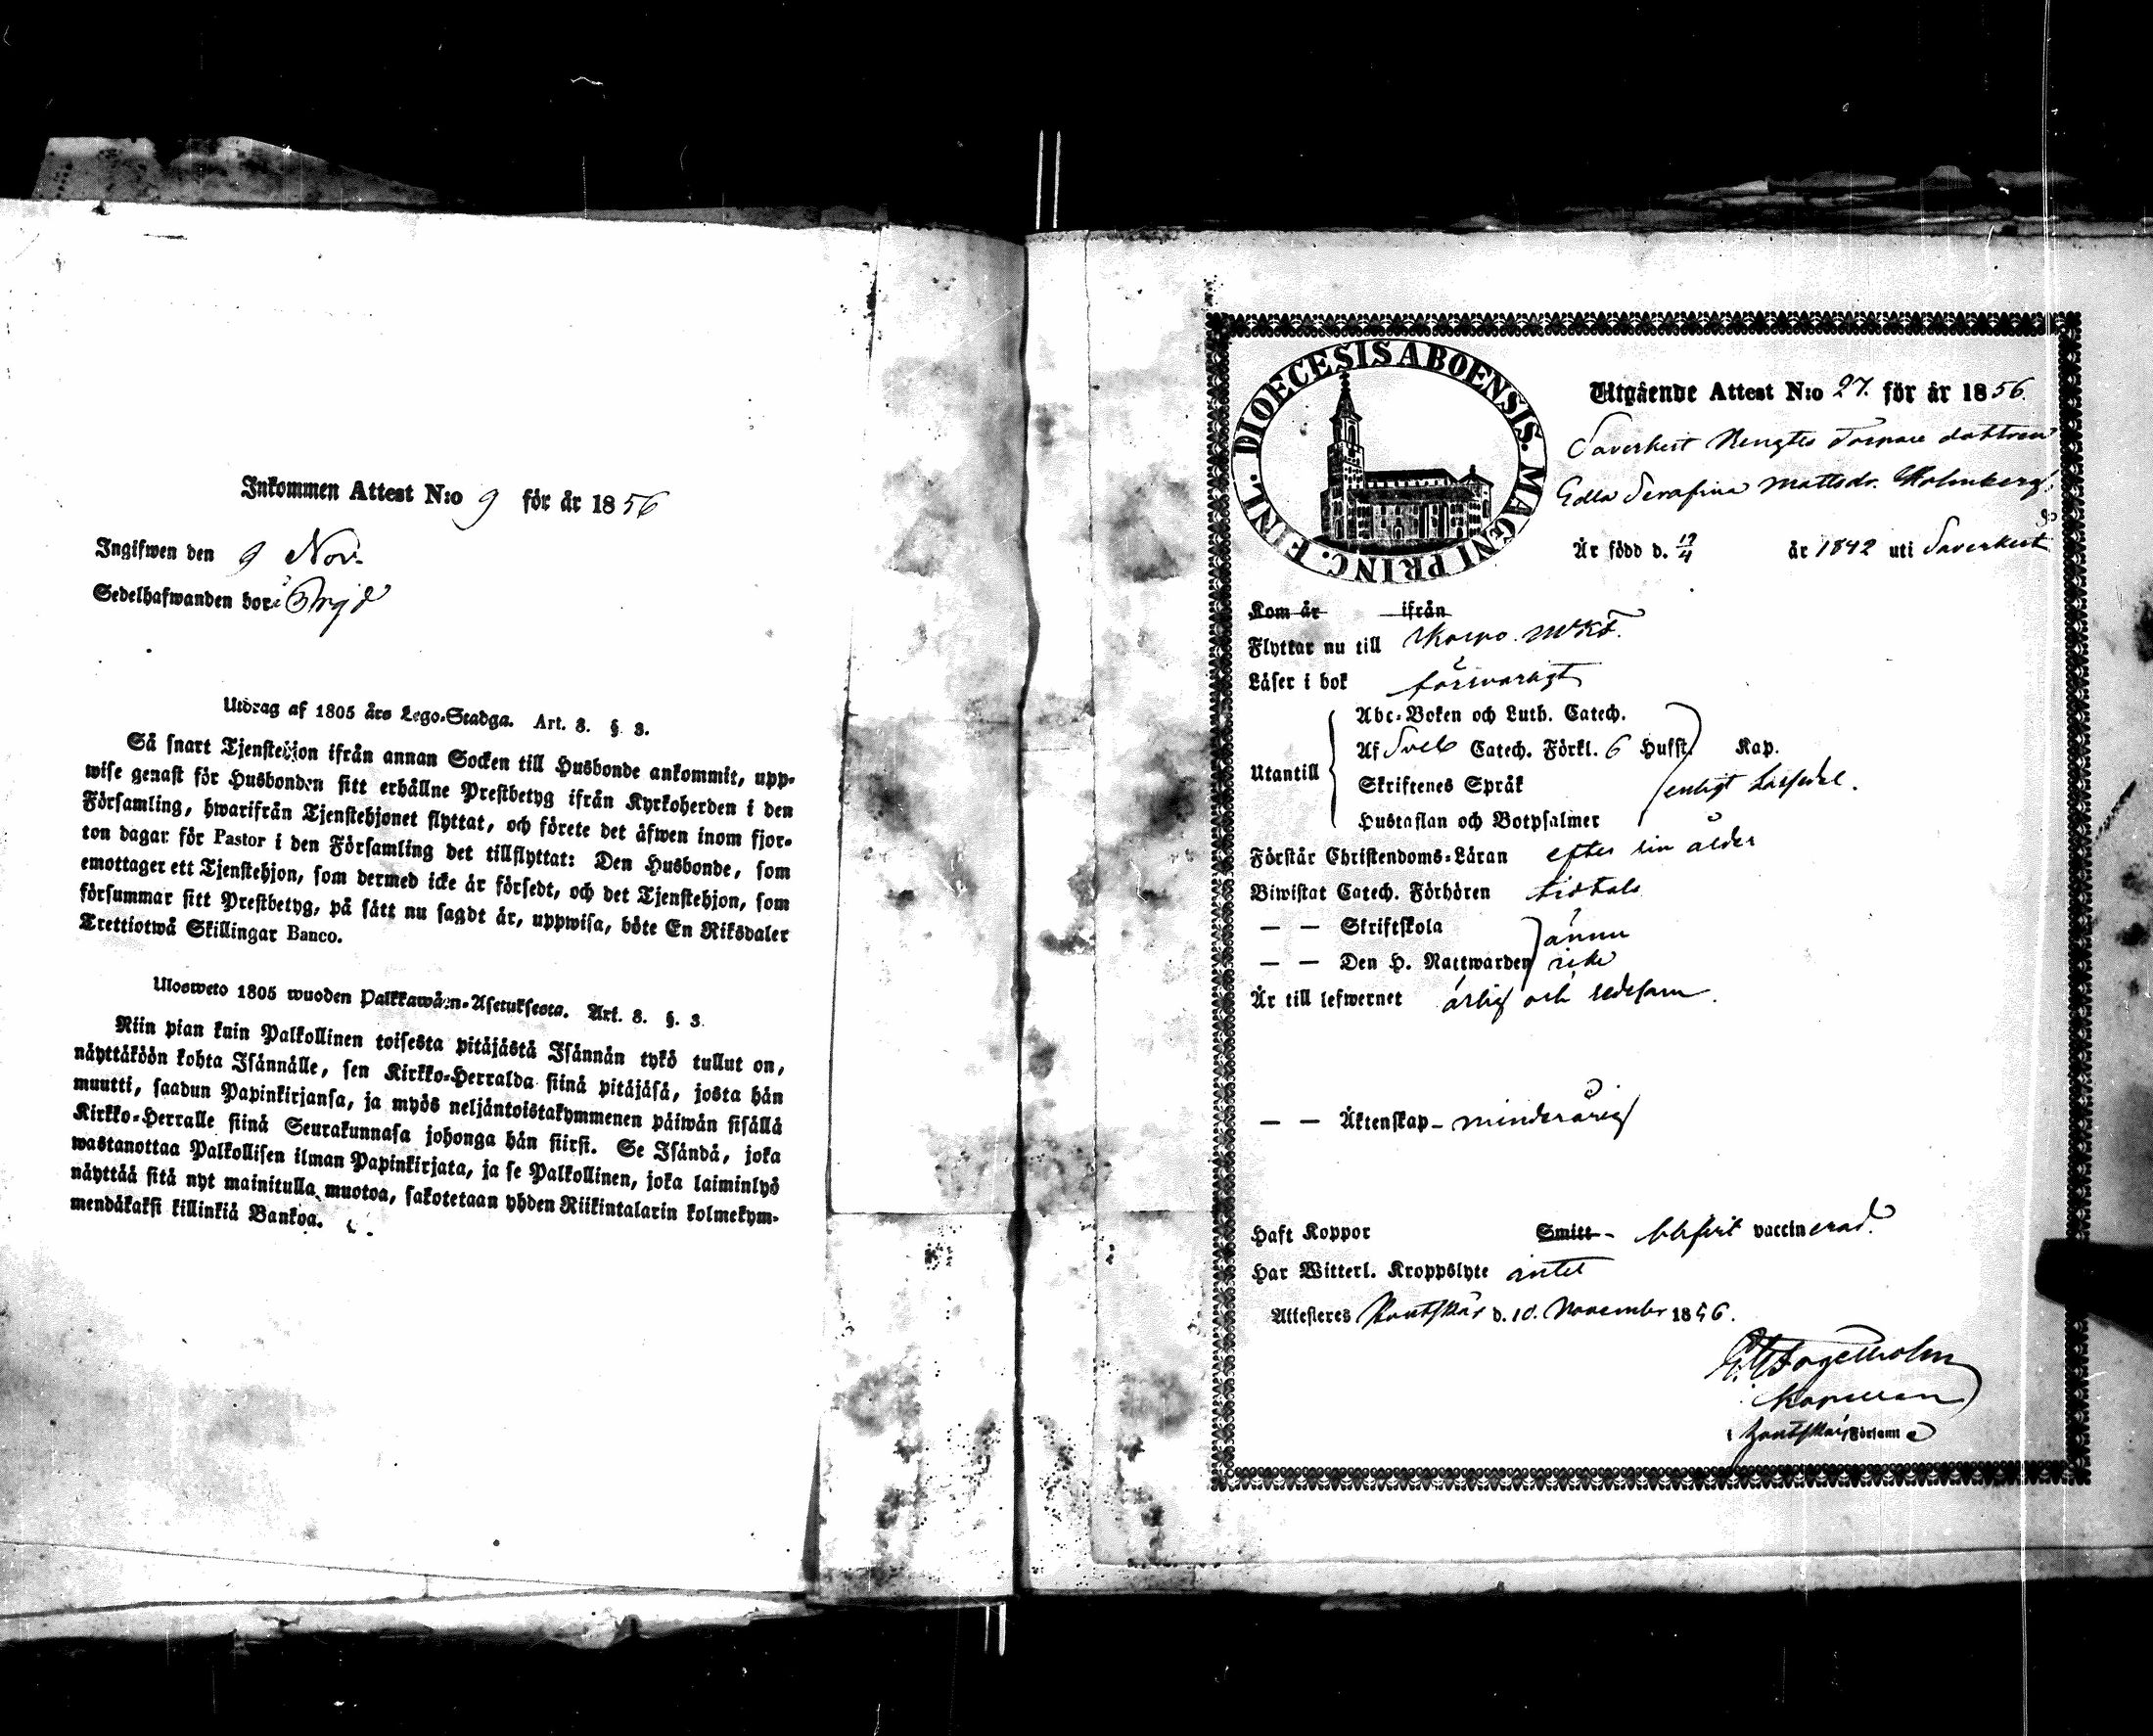 Inkommen Attest N:o 9 för år 1856
Ingifwen den 9 Nov.
Sedelhafwanden bor
Utdrag af 1805 års Lego-Stadga. Art. 8. § 3.
Så snart Tjenstehjon ifrån annan Socken till Husbonde ankommit, upp-
wise genast för Husbonden sitt erhållne Prestbetyg ifrån Kyrkoherden i den
Församling, hwarifrån Tjenstehjonet flyttat, och förete det äfwen inom fjor-
ton dagar för Pastor i den Församling det tillflyttat: Den Husbonde, som
emottager ett Tjenstehjon, som dermed icke är försedt, och det Tjenstehjon, som
försummar sitt Prestbetyg, på sätt nu sagdt är, uppwisa, böte En Riksdaler
Trettiotwå Skillingar Banco.
Ulosweto 1805 wuoden Palkkawäen-Asetuksesta. Art. 8. §. 3.
Niin pian kuin Palkollinen toisesta pitäjästä Isännän tykö tullut on,
näyttäköön kohta Isännälle, sen Kirkko-Herralda siinä pitäjäsä, josta hän
muutti, saadun Papinkirjansa, ja myös neljäntoistakymmenen päiwän sisällä
Kirkko-Herralle siinä Seurakunnasa johonga hän siirsi. Se Isändä, joka
wastanottaa Palkollisen ilman Papinkirjata, ja se Palkollinen, joka laiminlyö
näyttää sitä nyt mainitulla muotoa, sakotetaan yhden Riikintalarin kolmekym-
mendäkaksi killinkiä Bankoa.
DIOECESIS ABOENSIS. MAGNI PRINC. FINL.
Utgående Attest N:o 27. för år 1856.
Saverkeit Bengtes Torpare dottren
Edla Serafina Mattsdr. Holmberg.
Är född d. 17/4 år 1842 uti Saverkeit
Kom år ifrån
Flyttar nu till Korpo
Läser i bok försvarligt
Abc-Boken och Luth. Catech.
Utantill Af Sveb Catech. Förkl. 6 Hufst. Kap.
Skriftenes Språk enligt läsfedel.
Hustaflan och Botpsalmer
Förstår Christendoms-Läran efter sin ålder
Biwistat Catech. Förhören tidtals
— — Skriftskola ännu
— — Den H. Nattwarden icke
Är till lefwernet ärlig och sedesam.
— — Äktenskap - minderårig
Haft Koppor Smitt - blifvit vaccinerad.
Har Witterl. Kroppslyte intet
Attesteres Houtskär d. 10. November 1856.
Fagerholm
Kapellan
i Houtskär Församl